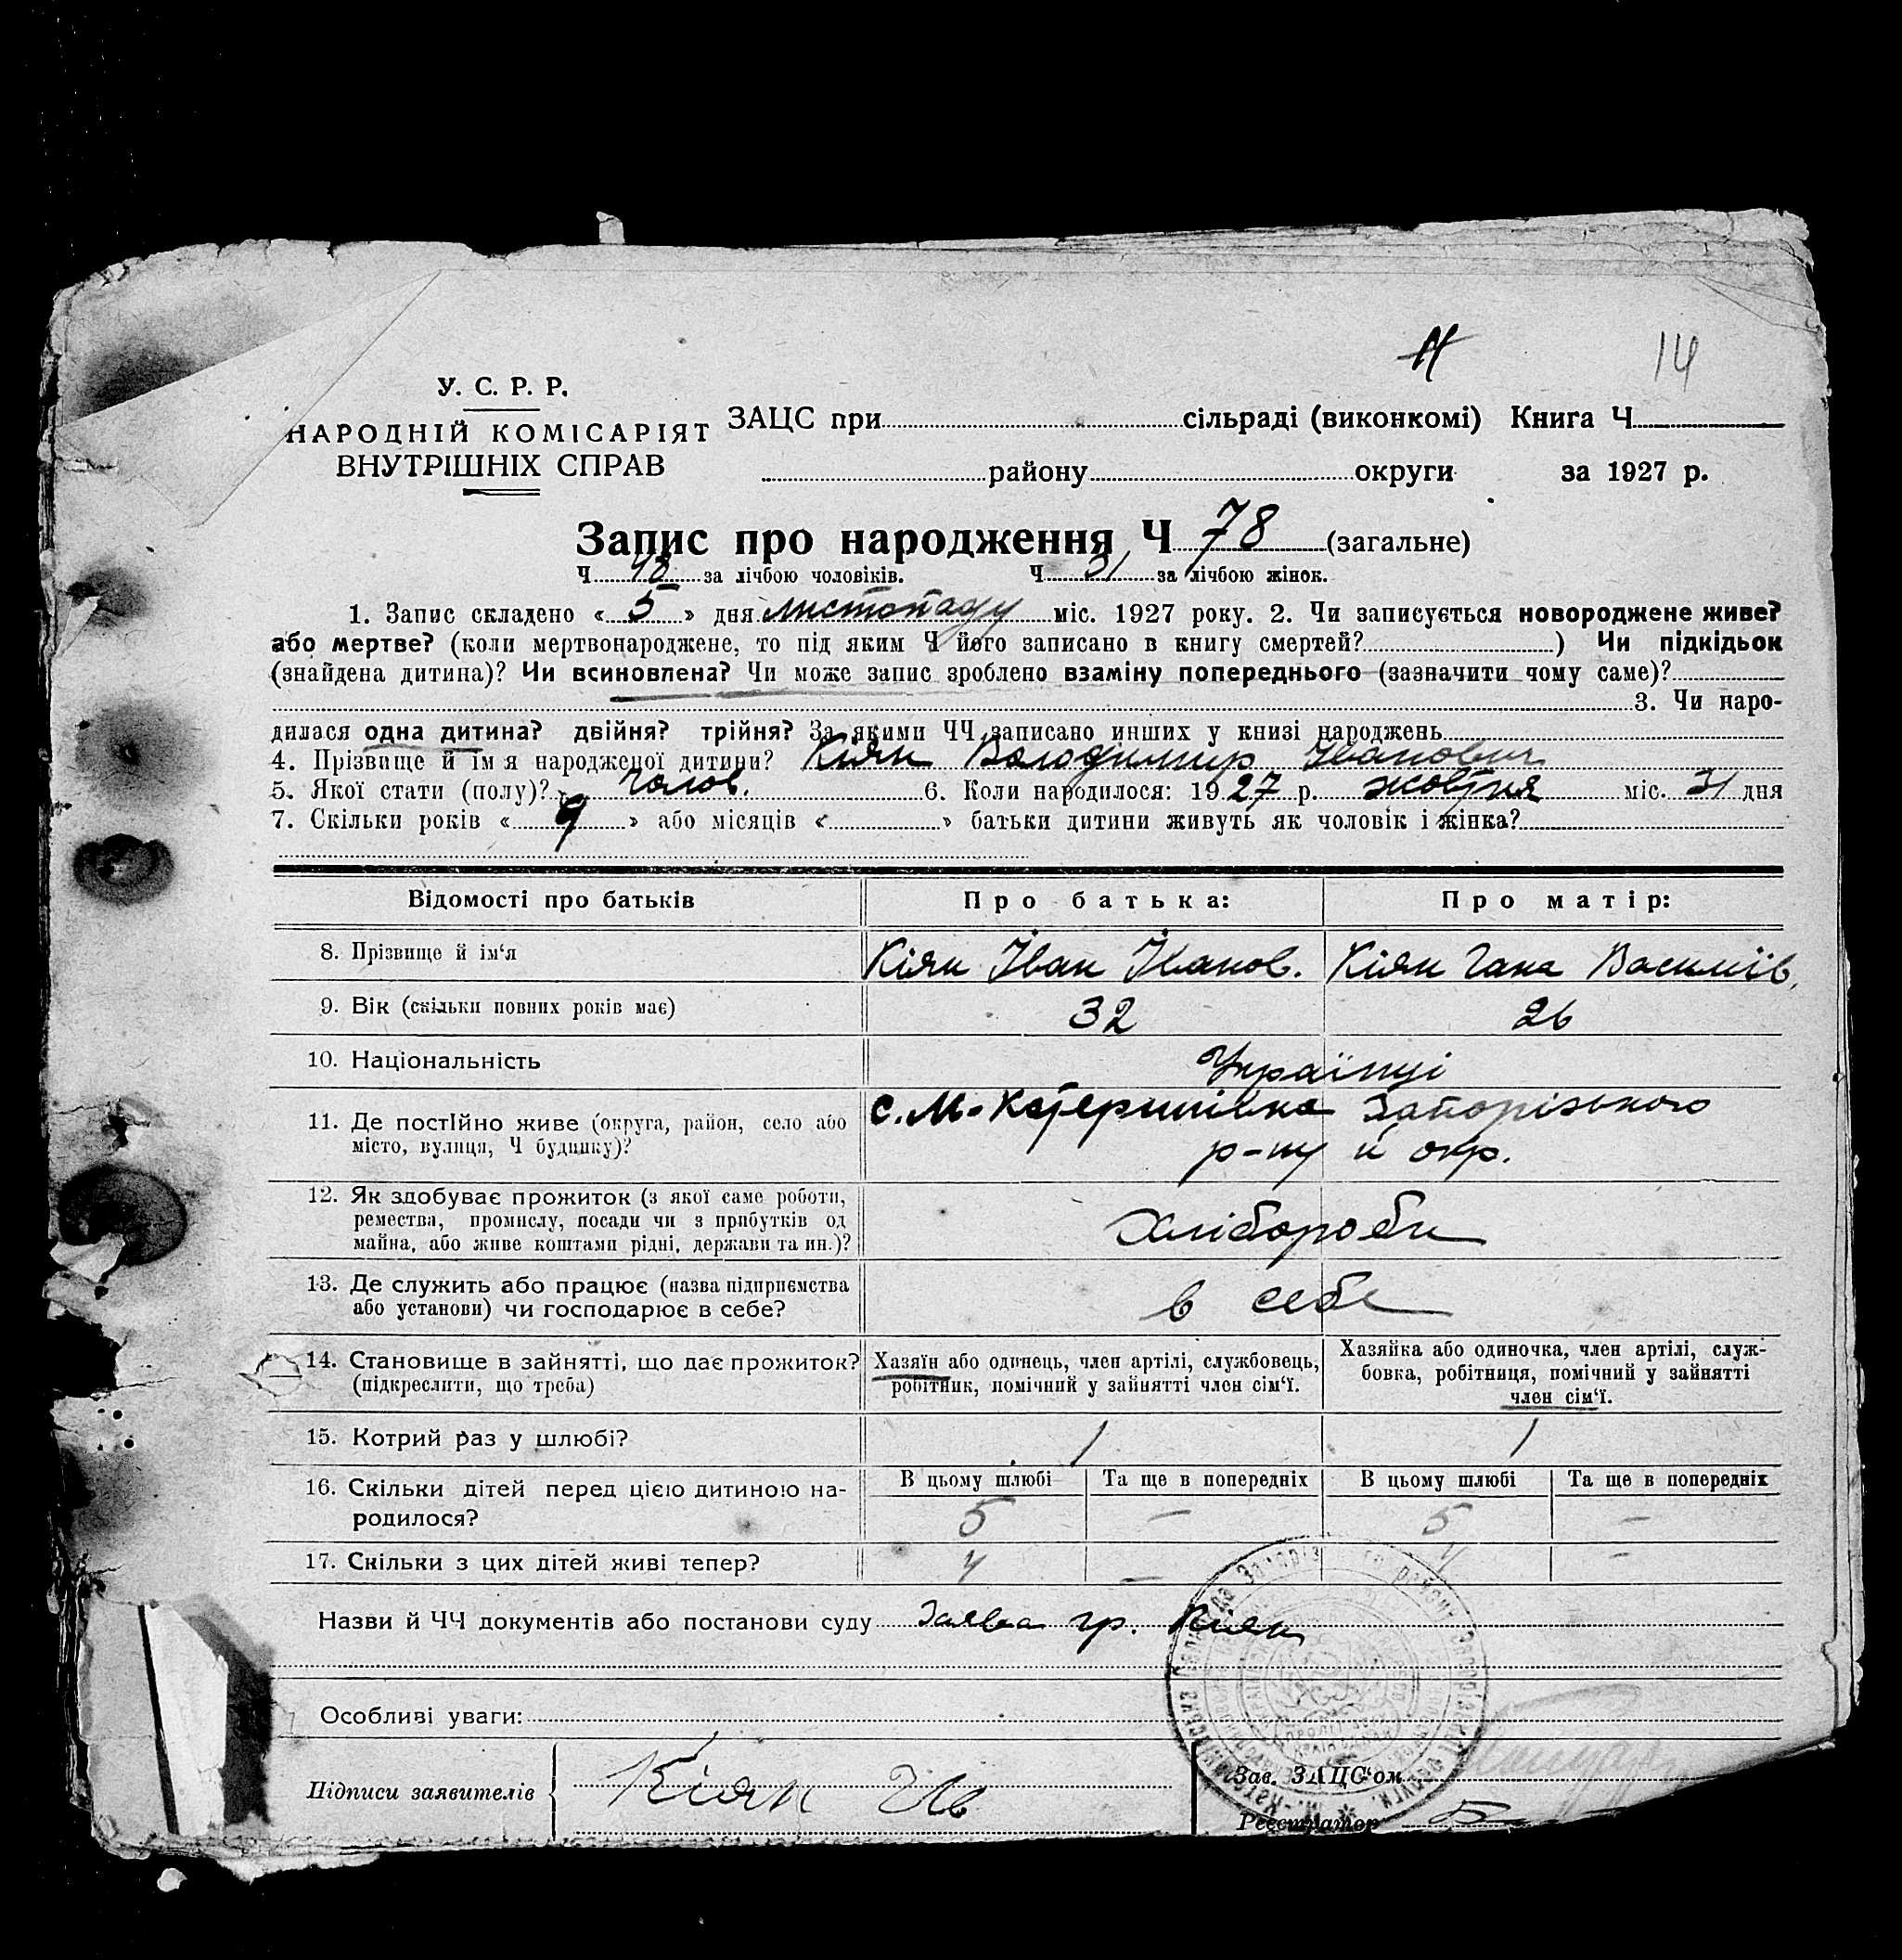 14
У. С. Р. Р.
НАРОДНІЙ КОМІСАРІЯТ
ВНУТРІШНІХ СПРАВ
ЗАЦС при сільраді (виконкомі) Книга Ч
району округи за 1927 р.
Запис про народження Ч 78 (загальне)
Ч за лічбою чоловіків. Ч 31 за лічбою жінок.
1. Запис складено « 5 » дня листопаду міс. 1927 року. 2. Чи записується новороджене живе?
або мертве? (коли мертвонароджене, то під яким Ч його записано в книгу смертей? ) Чи підкідьок
(знайдена дитина)? Чи всиновлена? Чи може запис зроблено взаміну попереднього (зазначити чому саме)?
3. Чи наро-
дилася одна дитина? двійня? трійня? За якими ЧЧ записано инших у книзі народжень
4. Прізвище й ім я народженої дитини? Кіян Володимир Іванович
5. Якої стати (полу)? чолов. 6. Коли народилося: 1927 р. жовтня міс. 31 дня
7. Скільки років « 9 » або місяців « » батьки дитини живуть як чоловік і жінка?
Відомості про батьків Про батька: Про матір:
8. Прізвище й ім‘я Кіян Іван Іванов. Кіян Гана Василів.
9. Вік (скільки повних років має) 32 26
10. Національність Українці
11. Де постІйно живе (округа, район, село або
місто, вулиця, Ч будинку)?
с. М-Катеринівка Запорізького
р-ну й окр.
12. Як здобуває прожиток (з якої саме роботи,
ремества, промислу, посади чи з прибутків од
майна, або живе коштами рідні, держави та ин.)?
Хлібороби
13. Де служить або працює (назва підприємства
або установи) чи господарює в себе?
в себе
14. Становище в зайнятті, що дає прожиток?
(підкреслити, що треба)
Хазяїн або одинець, член артілі, службовець,
робітник, помічний у зайнятті член сім‘ї.
Хазяйка або одиночка, член артілі, служ-
бовка, робітниця, помічний у зайнятті
член сім‘ї.
15. Котрий раз у шлюбі? 1 1
16. Скільки дітей перед цією дитиною на-
родилося?
В цьому шлюбі Та ще в попередніх В цьому шлюбі Та ще в попередніх
5 — 5 —
17. Скільки з цих дітей живі тепер? 4 — 4 —
Назви й ЧЧ документів або постанови суду Заява гр. Кіян
Особливі уваги:
Підписи заявителів Кіян Ив
Зав. ЗАЦС‘ом
Реєстратор